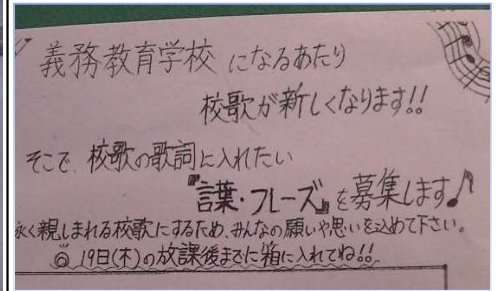 義務教育学校 になるあたり
校歌が新しくなります!!
そこで、校歌の歌詞に入れたい
『言葉・フレーズ』を募集します♪
永く親しまれる校歌にするため、みんなの願いや思いを込めて下さい。
◎ 19日(木)の放課後までに箱に入れてね!!